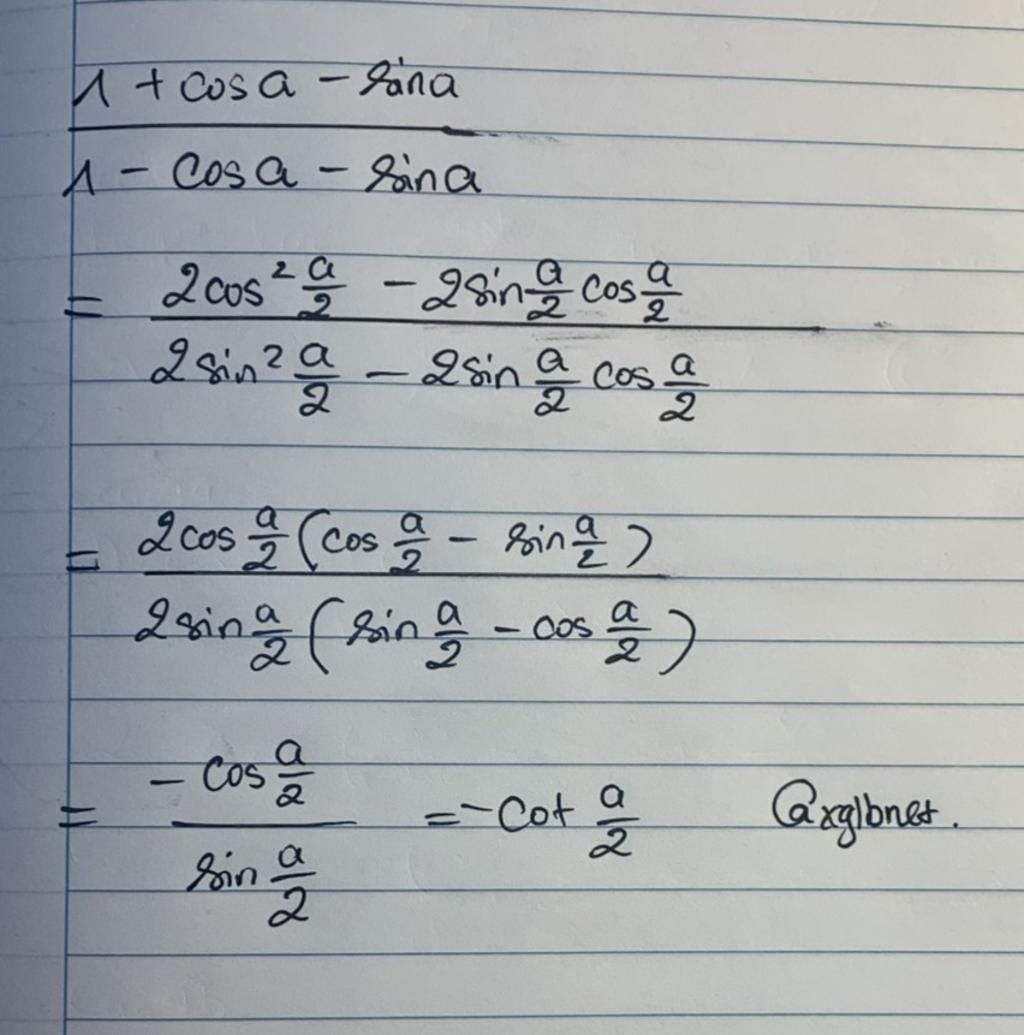 1 + cos a - sin a
1 - cos a - sin a
= 2cos² a/2 - 2sin a/2 cos a/2
2sin² a/2 - 2sin a/2 cos a/2
= 2cos a/2 (cos a/2 - sin a/2)
2sin a/2 (sin a/2 - cos a/2)
= - cos a/2 = - cot a/2 @xglbnet.
sin a/2